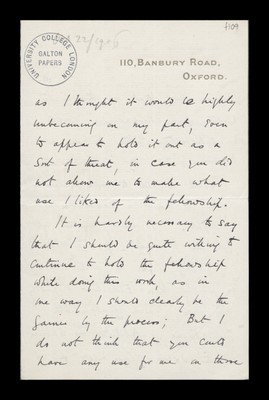 f109
22/1906
UNIVERSITY COLLEGE LONDON
GALTON
PAPERS
110, BANBURY ROAD,
OXFORD.
as I thought it would be highly
unbecoming on my part, even
to appear to hold it out as a
sort of threat, in case you did
not allow me to make what
use I liked of the fellowship.
It is hardly necessary to say
that I should be quite willing to
continue to hold the fellowship
while doing this work, as in
one way I should clearly be the
gainer by the process; But I
do not think that you could
have any use for me on those